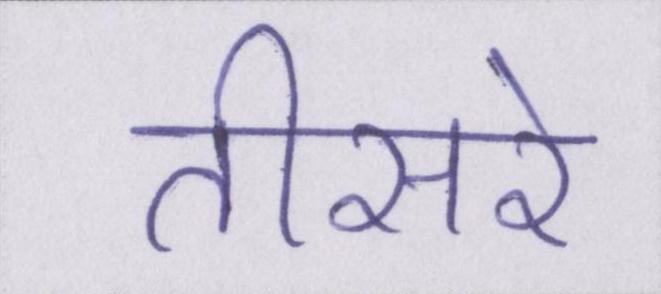 तीसरे